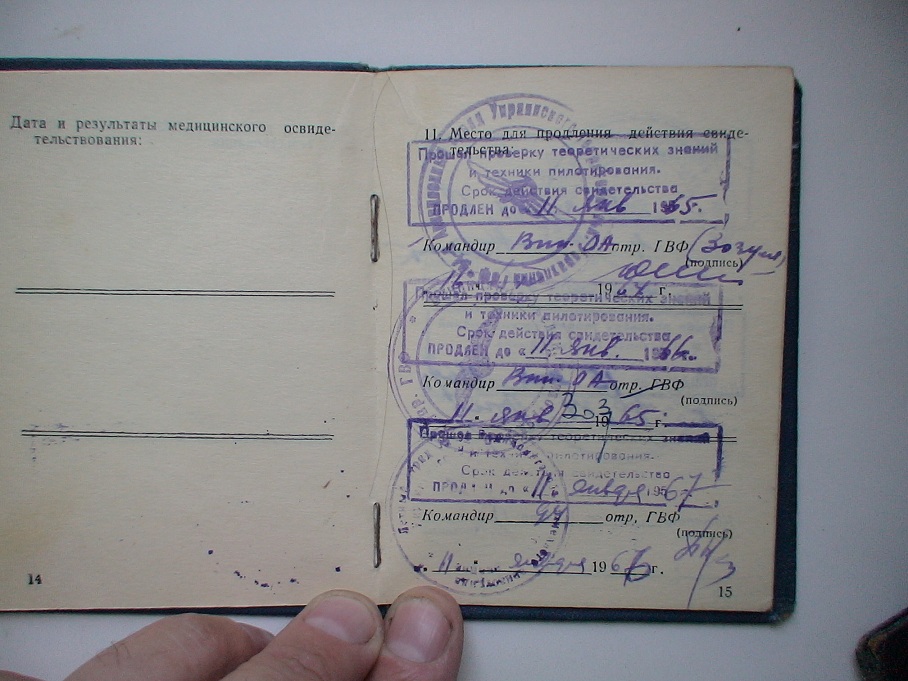 Дата и результаты медицинского освиде-
тельствования:
14
11. Место для продления действия свиде-
тельства:
Прошел проверку теоретических знаний
и техники пилотирования.
Срок действия свидетельства
ПРОДЛЕН до « 11 янв 1965.
Командир Вин. ОА отр. ГВФ (Зозуля)
(подпись)
1964 г.
Прошел проверку теоретических знаний
и техники пилотирования.
Срок действия свидетельства
ПРОДЛЕН до « 11 янв. 1966.
Командир Вин. ОА отр. ГВФ
(подпись)
11 янв 1965 г.
Прошел проверку теоретических знаний
и техники пилотирования.
Срок действия свидетельства
ПРОДЛЕН до « 11 января 1967
Командир отр. ГВФ
(подпись)
11 января 1966 г.
15